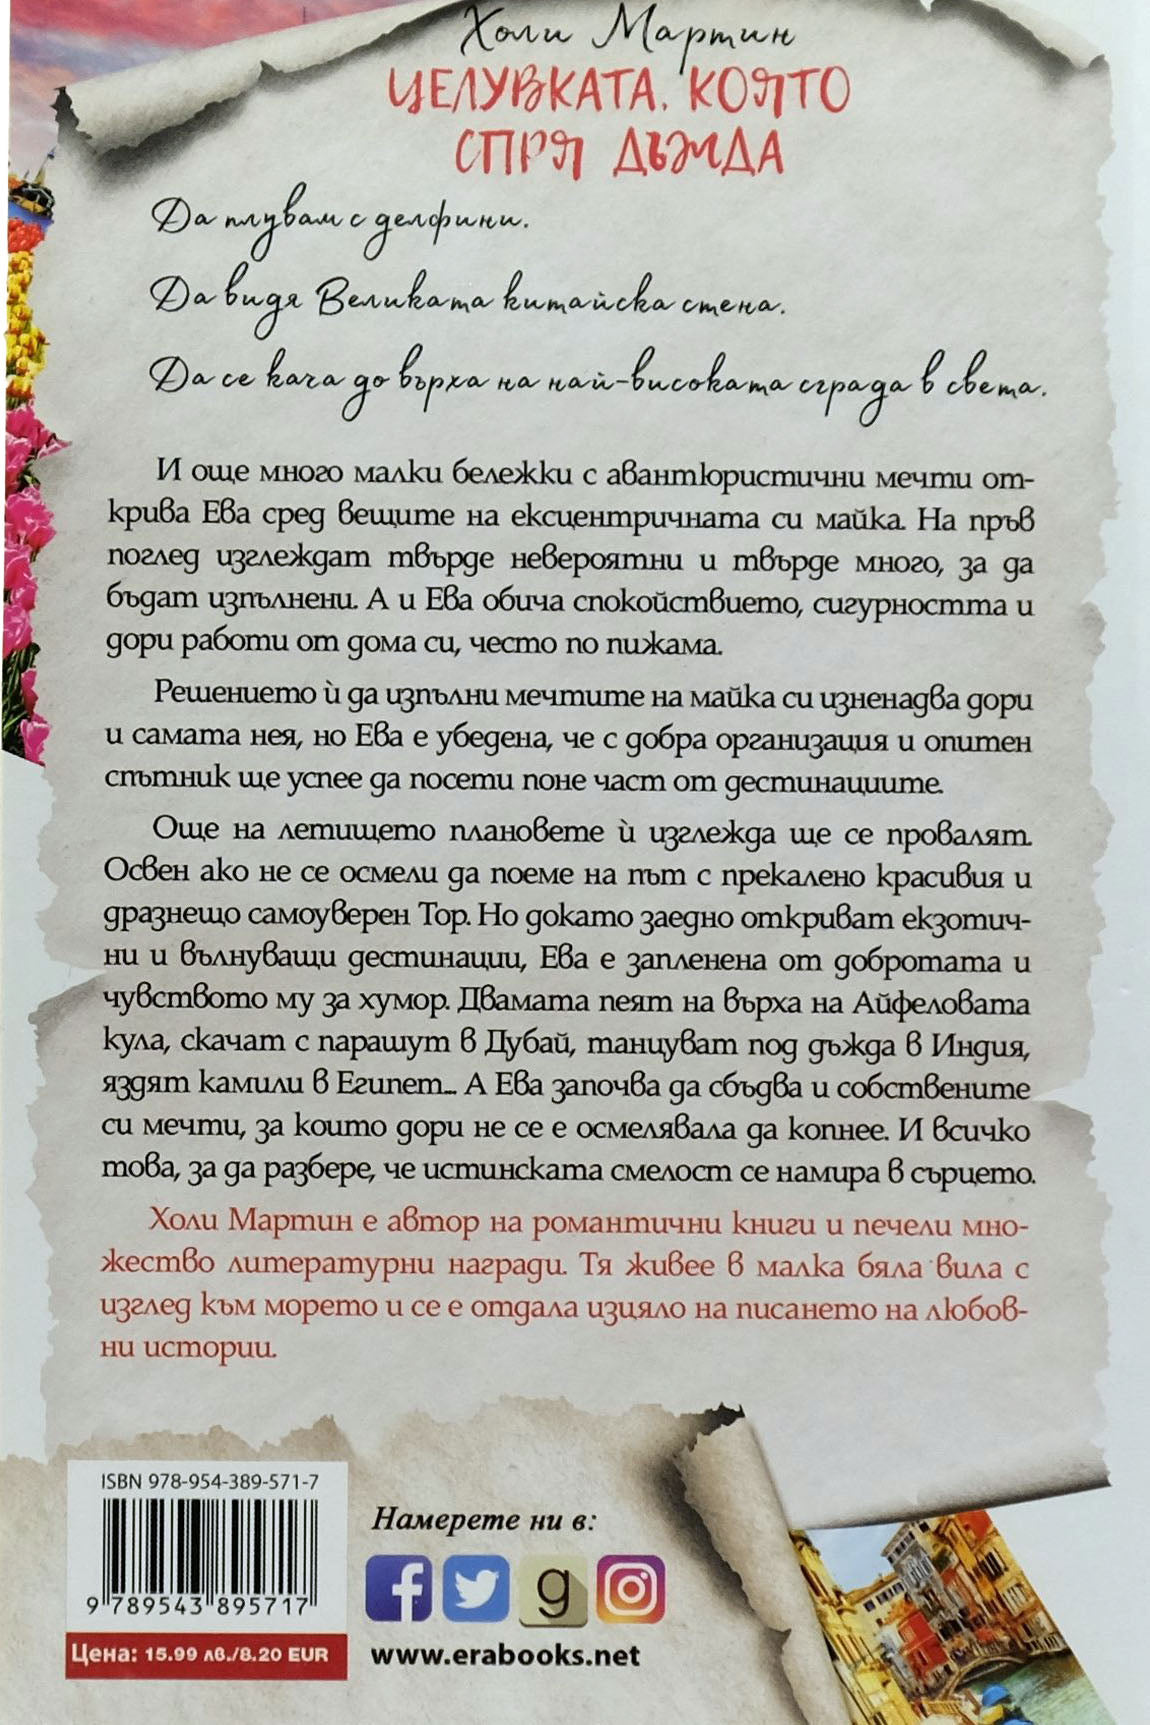 Холи Мартин
ЦЕЛУВКАТА, КОЯТО
СПРЯ ДЪЖДА
Да плувам с делфини.
Да видя Великата китайска стена.
Да се кача до върха на най-високата сграда в света.
И още много малки бележки с авантюристични мечти от-
крива Ева сред вещите на ексцентричната си майка. На пръв
поглед изглеждат твърде невероятни и твърде много, за да
бъдат изпълнени. А и Ева обича спокойствието, сигурността и
дори работи от дома си, често по пижама.
Решението ѝ да изпълни мечтите на майка си изненадва дори
и самата нея, но Ева е убедена, че с добра организация и опитен
спътник ще успее да посети поне част от дестинациите.
Още на летището плановете ѝ изглежда ще се провалят.
Освен ако не се осмели да поеме на път с прекалено красивия и
дразнещо самоуверен Тор. Но докато заедно откриват екзотич-
ни и вълнуващи дестинации, Ева е запленена от добротата и
чувството му за хумор. Двамата пеят на върха на Айфеловата
кула, скачат с парашут в Дубай, танцуват под дъжда в Индия,
яздят камили в Египет... А Ева започва да сбъдва и собствените
си мечти, за които дори не се е осмелявала да копнее. И всичко
това, за да разбере, че истинската смелост се намира в сърцето.
Холи Мартин е автор на романтични книги и печели мно-
жество литературни награди. Тя живее в малка бяла вила с
изглед към морето и се е отдала изцяло на писането на любов-
ни истории.
ISBN 978-954-389-571-7
9 789543 895717
Цена: 15.99 лв./8.20 EUR
Намерете ни в:
f g
www.erabooks.net